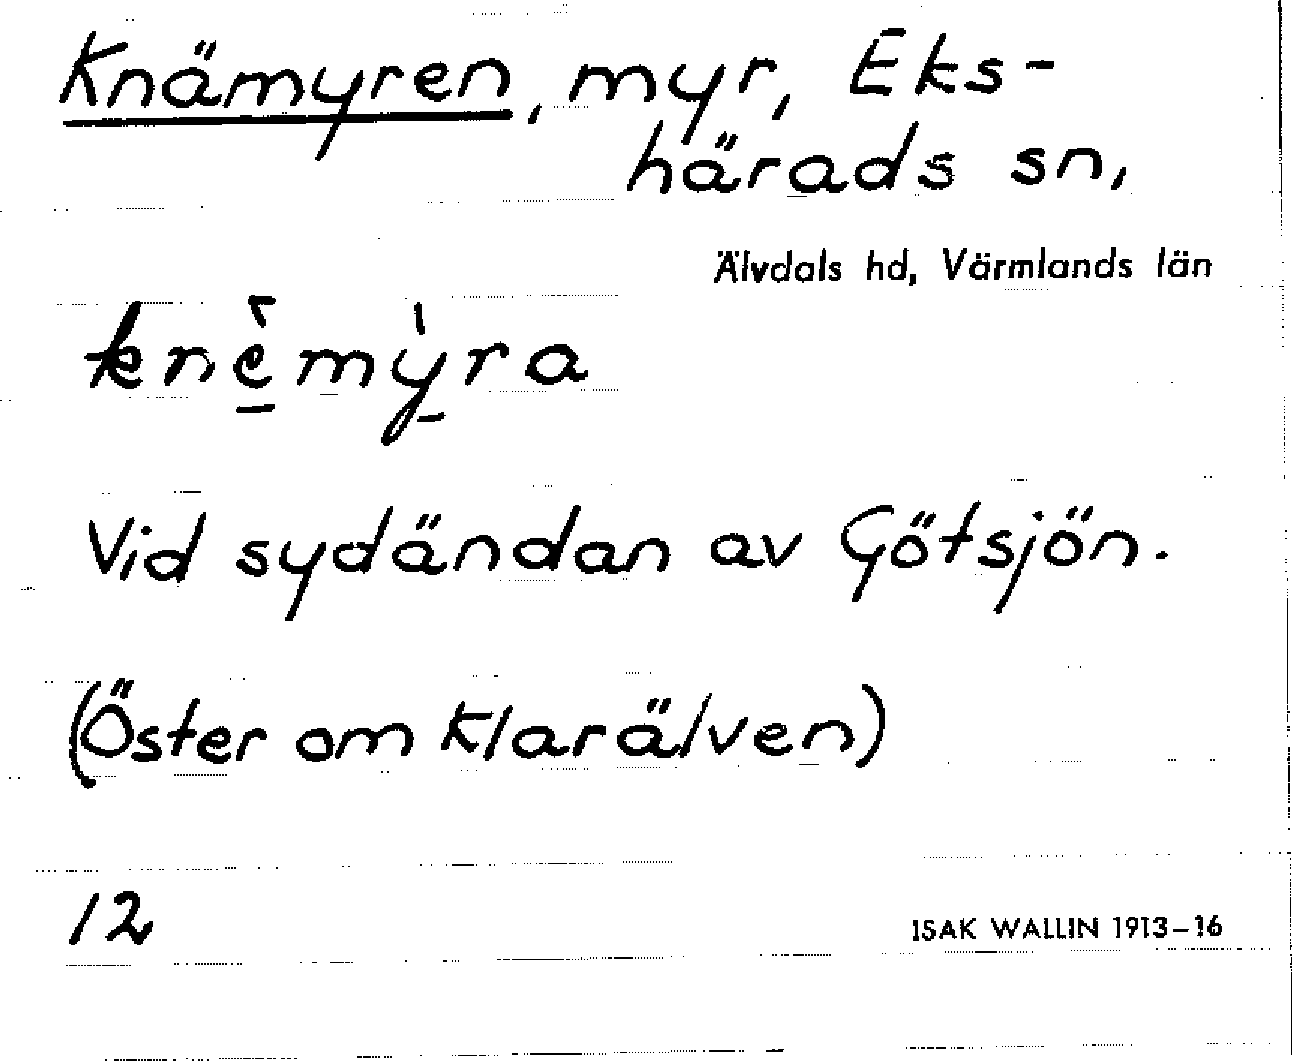 Knämyren, myr, Eks-
härads sn,
Älvdals hd, Värmlands län
knè̱mỳ̱ra
Vid sydändan av Götsjön.
(Öster om Klarälven)
12
ISAK WALLIN 1913–16